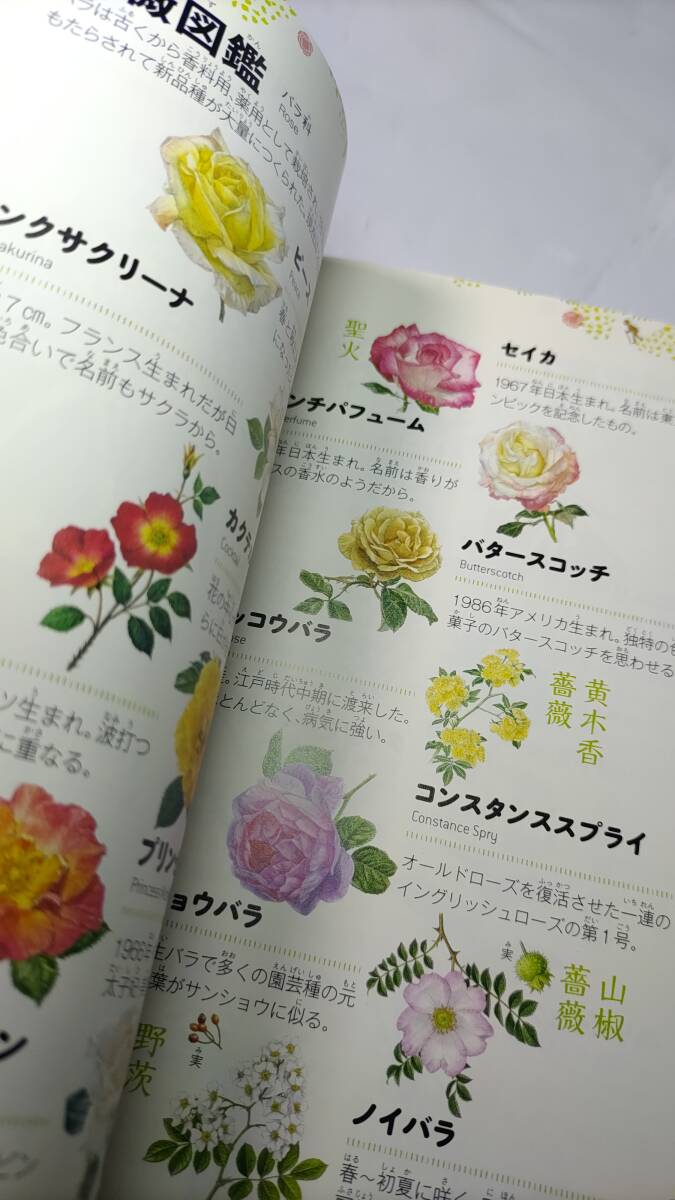 薇図鑑
バラ科
Rose
ラは古くから香料用、薬用として栽培され
もたらされて新品種が大量につくられた
ンクサクリーナ
akurina
7cm。フランス生まれだが日
色合いで名前もサクラから。
カクテ
Cocktail
花の
らに
ン生まれ。波打つ
に重なる。
プリン
Princess
1966年
太子妃
ン
聖火
セイカ
1967年日本生まれ。名前は東
ンピックを記念したもの。
ンチパフューム
erfume
年日本生まれ。名前は香りが
スの香水のようだから。
バタースコッチ
Butterscotch
1986年アメリカ生まれ。独特の色
菓子のバタースコッチを思わせる
ッコウバラ
ose
。江戸時代中期に渡来した。
とんどなく、病気に強い。
黄木香
薔薇
コンスタンススプライ
Constance Spry
オールドローズを復活させた一連の
イングリッシュローズの第1号。
ョウバラ
生バラで多くの園芸種の元
葉がサンショウに似る。
実
山椒
薔薇
野茨
実
ノイバラ
春〜初夏に咲く